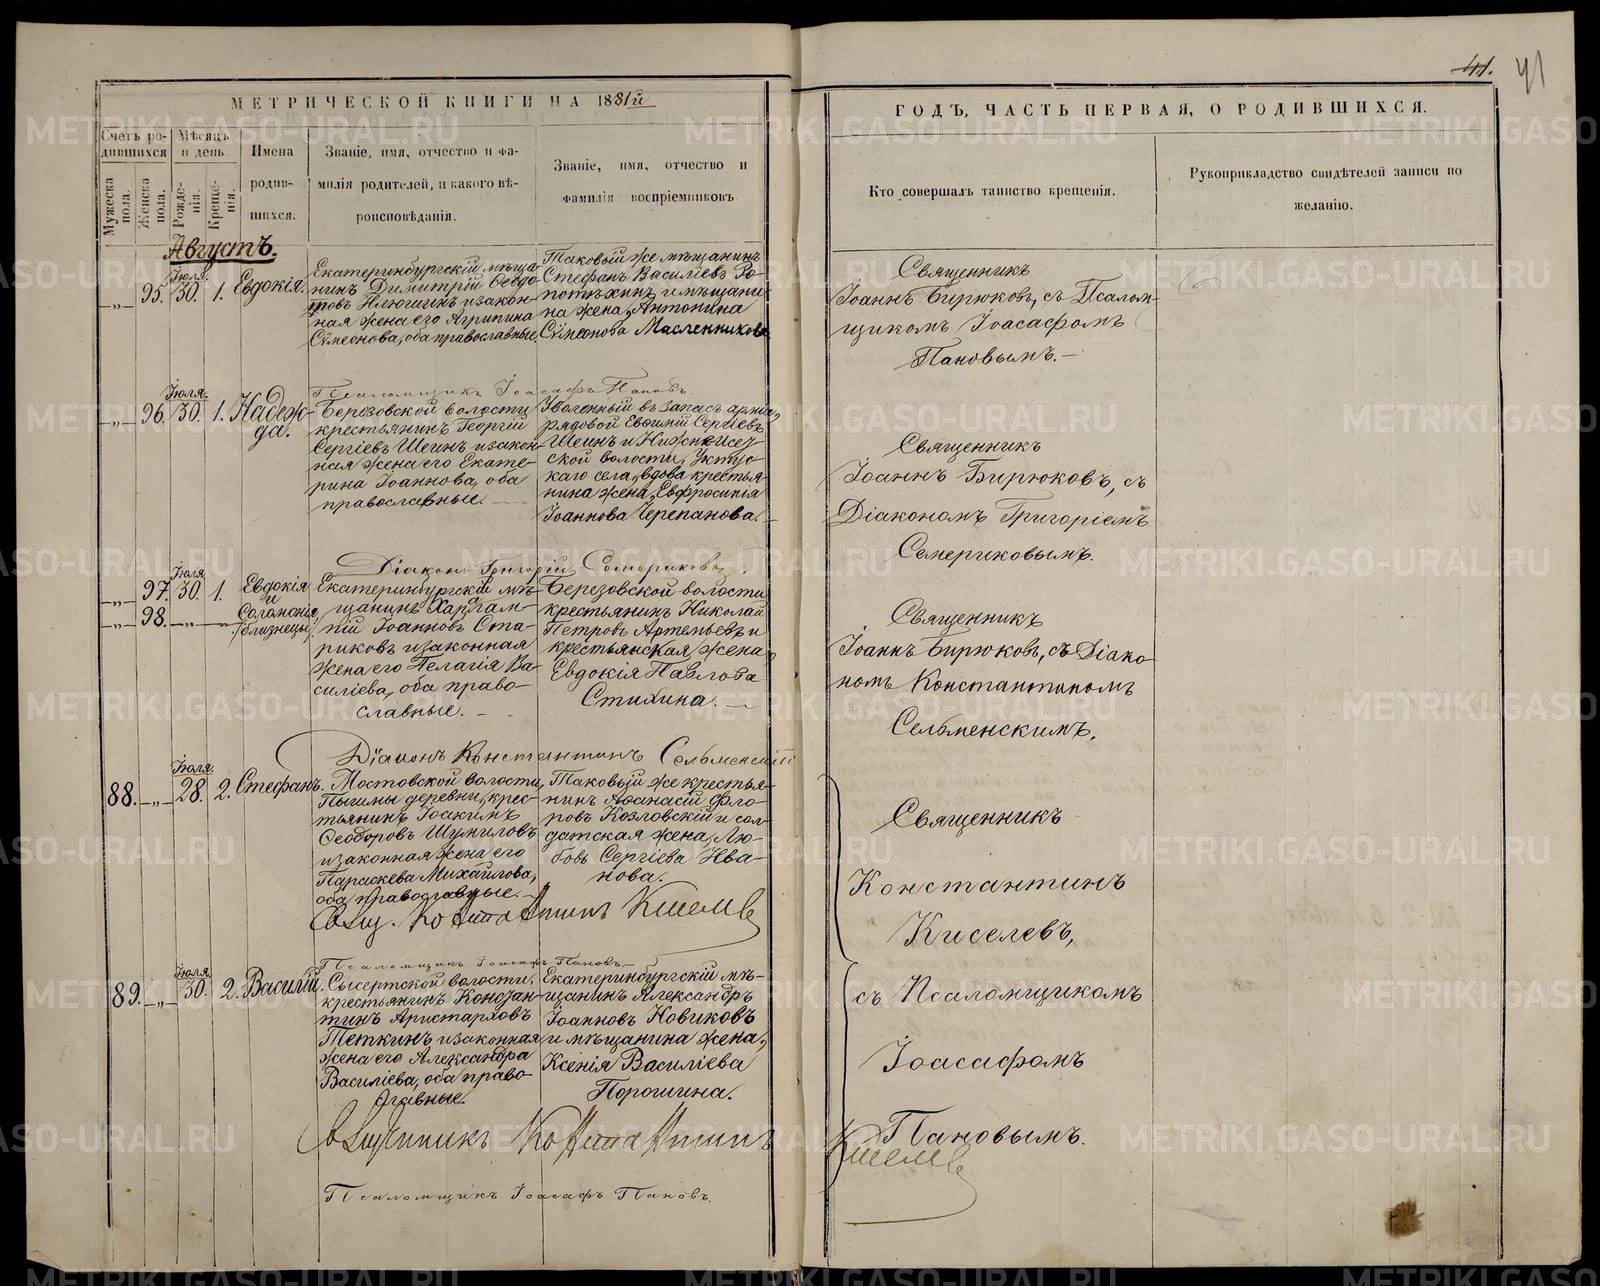 41.
41
МЕТРИЧЕСКОЙ КНИГИ НА 1881й
ГОДЪ, ЧАСТЬ ПЕРВАЯ, О РОДИВШИХСЯ.
Счетъ ро-
дившихся
Мѣсяцъ
и день.
Мужеска
пола.
Женска
пола.
Рожде-
нія.
Креще-
нія.
Имена
родив-
шихся.
Званіе, имя, отчество и фа-
милія родителей, и какого вѣ-
роисповѣданія.
Званіе, имя, отчество и
фамилія воспріемниковъ
Кто совершалъ таинство крещенія.
Рукоприкладство свидѣтелей записи по
желанію.
Августъ.
-„- 95. Іюля 30. 1. Евдокія.
Екатеринбургскій мѣща-
нинъ Димитрій Ѳеодо-
ровъ Илюшинъ и закон-
ная жена его Агрипина
Сѵмеонова, оба православные.
Таковый же мѣщанинъ
Стефанъ Васильевъ Ро-
потѣхинъ и мѣщани-
на жена, Антонина
Сѵмеонова Масленникова
Священникъ
Іоаннъ Бирюковъ, съ Псалом-
щикомъ Іоасафомъ
Пановымъ.-
Псаломщикъ Іоасафъ Пановъ
-„- 96. Іюля 30. 1. Надеж-
да.
Березовской волости
крестьянинъ Георгій
Сергіевъ Шеинъ и закон-
ная жена его Екате-
рина Іоаннова, оба
православные.
Уволенный въ запасъ арміи,
рядовой Евѳимій Сергіевъ
Шеинъ и Нижнеисет-
ской волости, Уктус-
каго села, вдова крестья-
нина жена, Евфросинья
Іоаннова Черепанова.
Священникъ
Іоаннъ Бирюковъ, съ
Діакономъ Григоріемъ
Семериковымъ.
Діаконъ Григорій Семериковъ.
-„- 97. Іюля 30. 1. Евдокія
и
-„- 98. -„- -„- Соломонія
/близнецы/.
Екатеринбургскій мѣ-
щанинъ Харлам-
пій Іоанновъ Ста-
риковъ и законная
жена его Пелагія Ва-
силіева, оба право-
славные.
Березовской волости
крестьянинъ Николай
Петровъ Артемьевъ и
крестьянская жена
Евдокія Павлова
Стихина.
Священникъ
Іоаннъ Бирюковъ, съ Діако-
номъ Константиномъ
Сельменскимъ.
Діаконъ Константинъ Сельменскій
88. -„- Іюля. 28. 2. Стефанъ.
Мостовской волости,
Пышмы деревни, крес-
тьянинъ Іоакимъ
Ѳеодоровъ Шумиловъ
и законная жена его
Параскева Михайлова,
оба православные.
Таковый же крестья-
нинъ Аѳанасій Фло-
ровъ Козловскій и сол-
датская жена, Лю-
бовь Сергіева Ива-
нова.
Свящ. Константинъ Киселевъ
Псаломщикъ Іоасафъ Пановъ.
89. -„- Іюля 30. 2. Василій.
Сысертской волости,
крестьянинъ Констан-
тинъ Аристарховъ
Теткинъ и законная
жена его Александра
Василіева, оба право-
славные.
Екатеринбургскій мѣ-
щанинъ Александръ
Іоанновъ Новиковъ
и мѣщанина жена,
Ксенія Василіева
Порошина.
Священникъ
Константинъ
Киселевъ,
съ Псаломщикомъ
Іоасафомъ
Пановымъ.
Священникъ Константинъ Киселевъ
Псаломщикъ Іоасафъ Пановъ.
METRIKI.GASO-URAL.RU